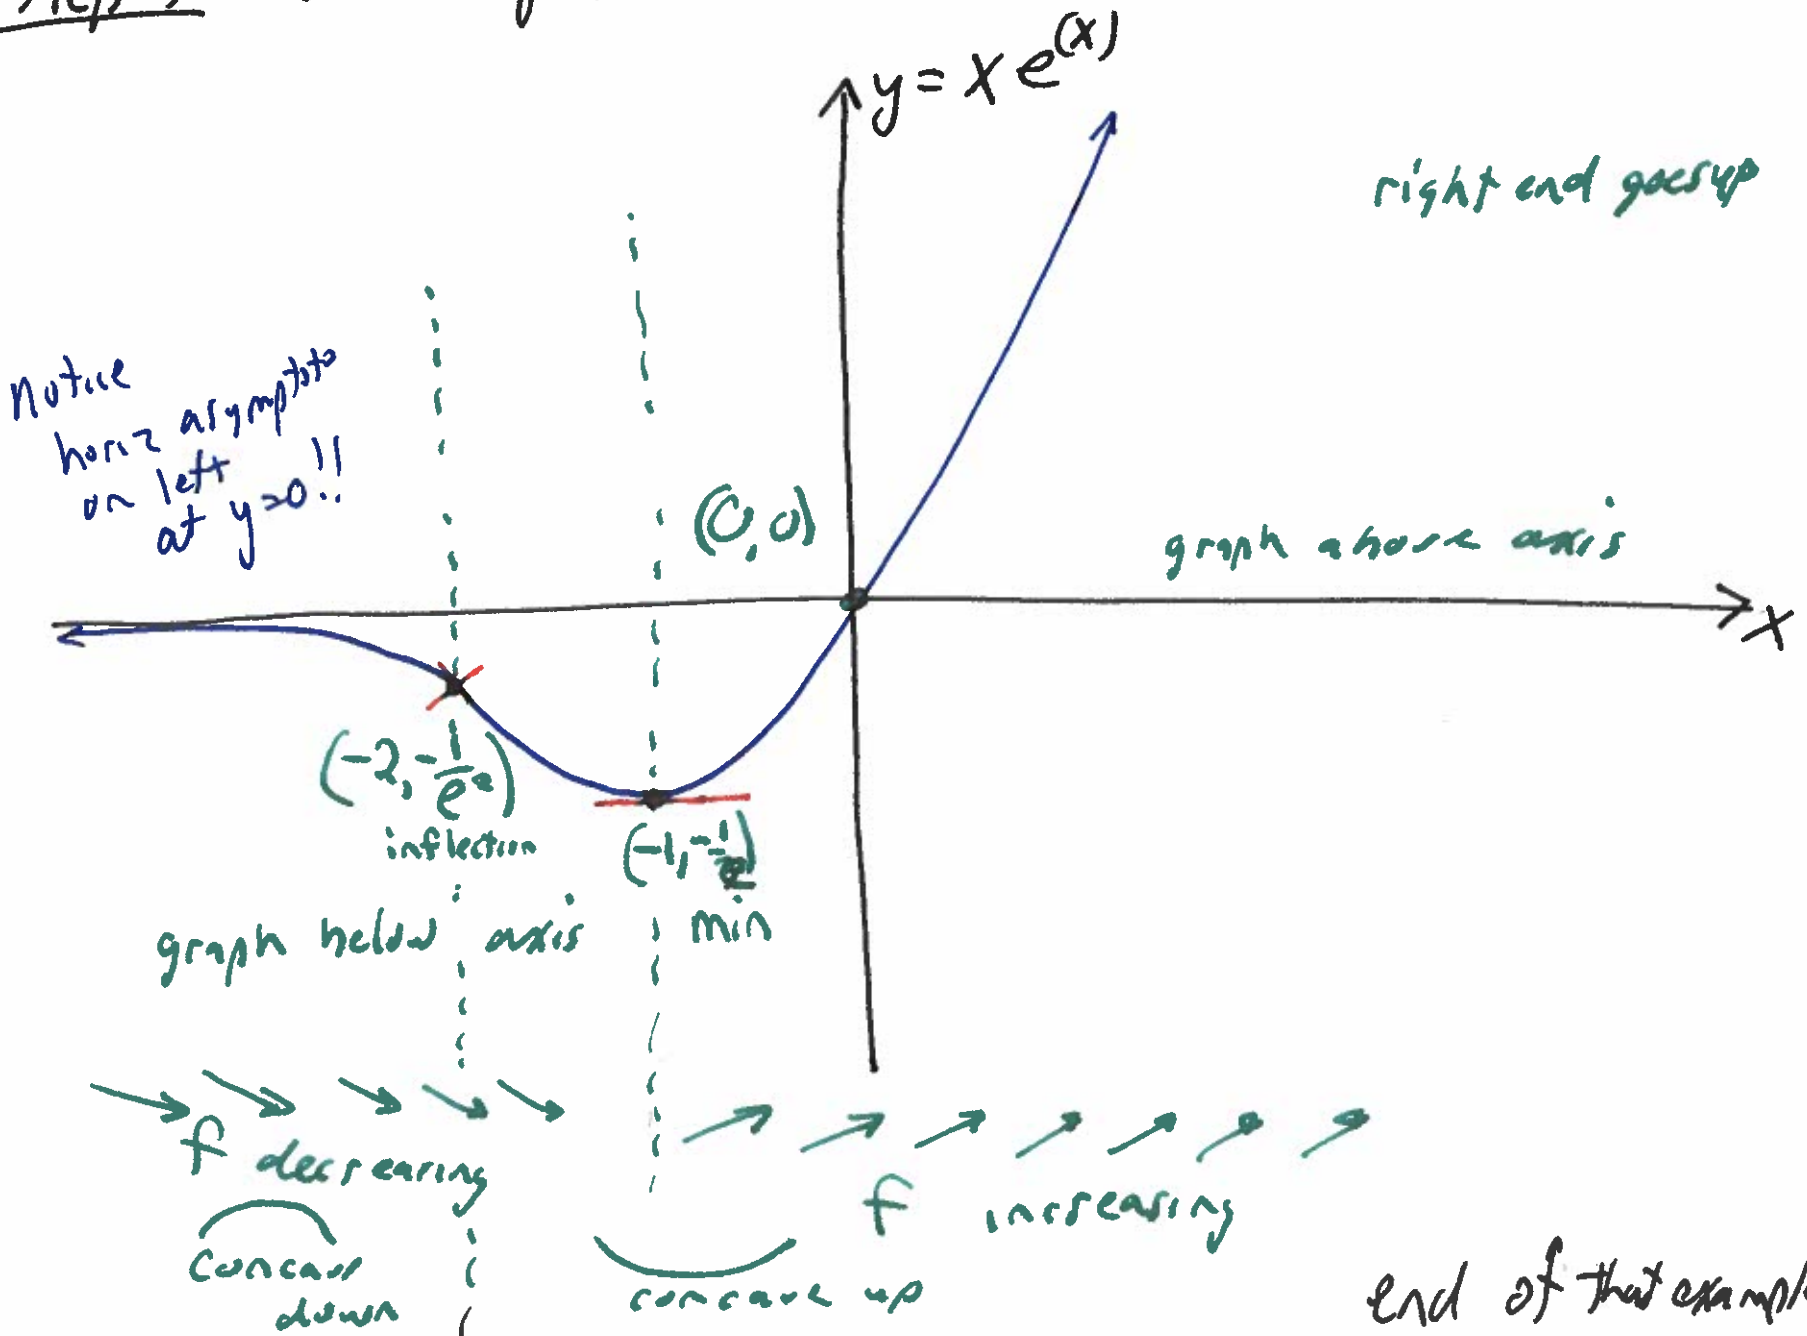 y = x e^(x)
right end goes up
Notice
horiz asymptote
on left
at y=0!!
(0,0)
graph above axis
x
(-2, -1/e²)
inflection
(-1, -1/e)
min
graph below axis
f decreasing
f increasing
concave
down
concave up
end of that exampl